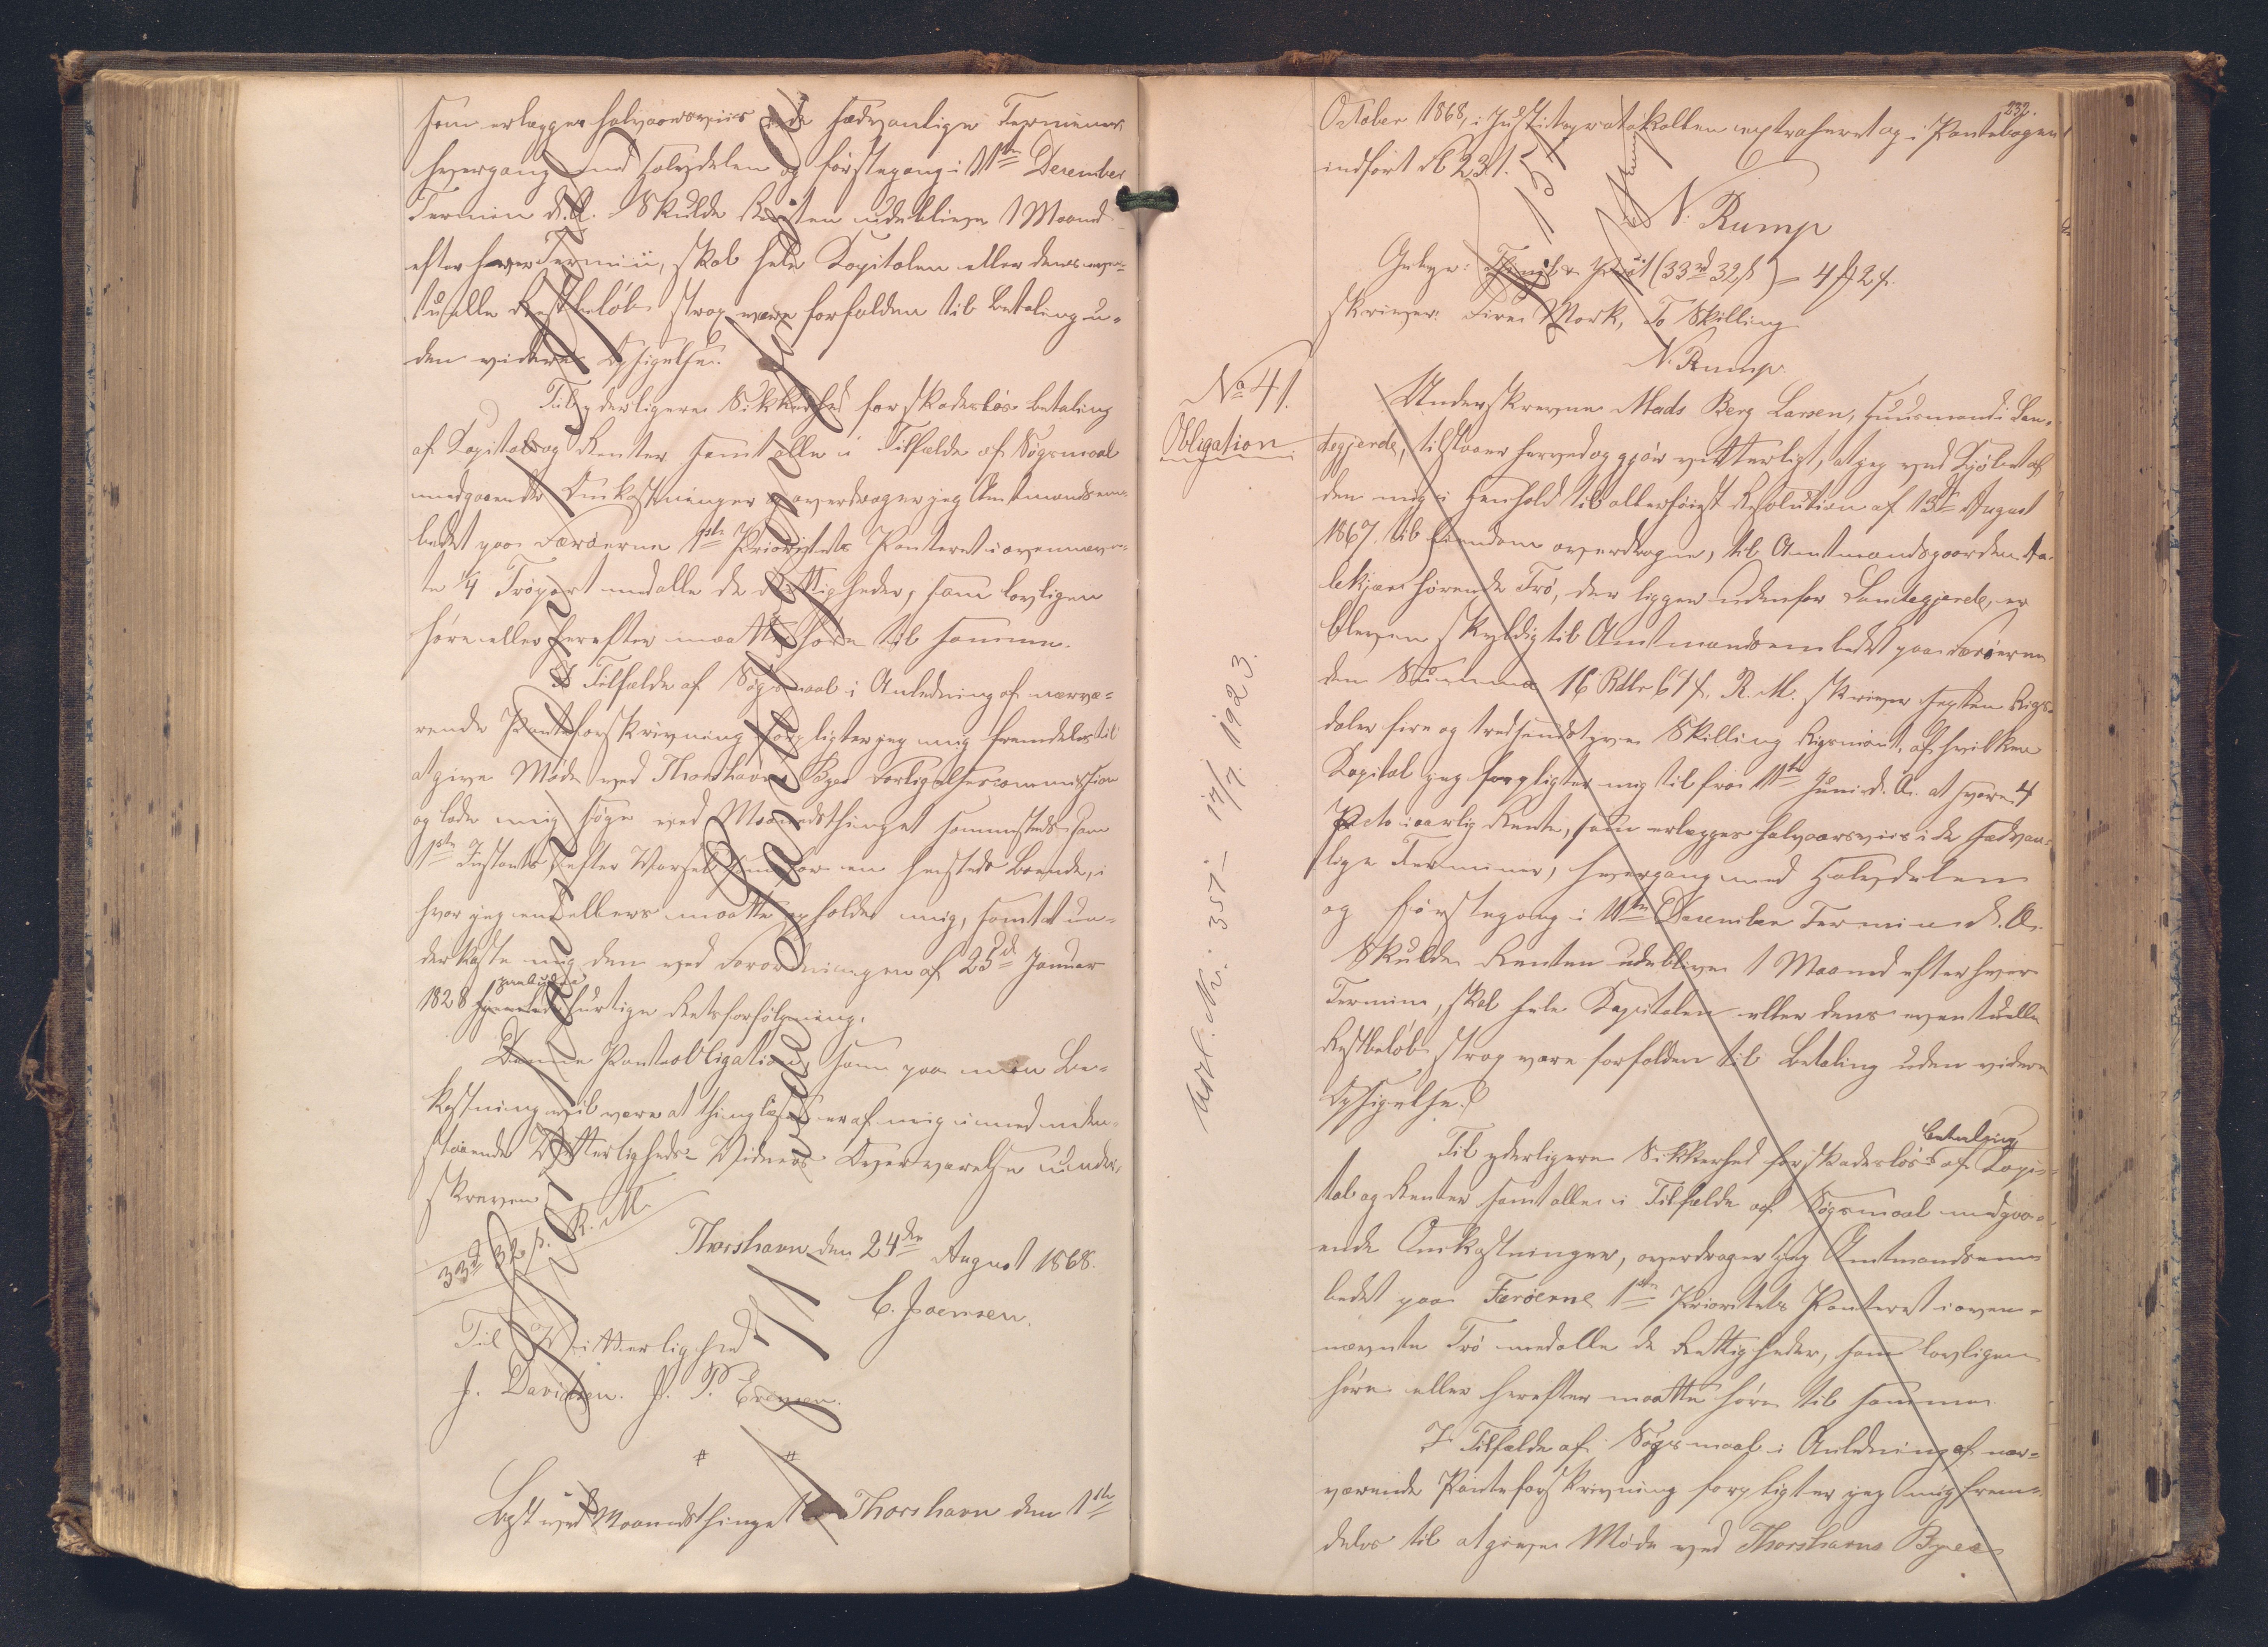 som erlægges halvaarsviis i de sædvanlige Terminer
hvergang med Halvdelen og førstegang i 11te December
Termin d. A. Skulde Renten udeblive 1 Maaned
efter hver Termin, skal hele Kapitalen eller dens even-
tuelle Restbeløb strax være forfalden til Betaling u-
den videre Opsigelse.
Til yderligere Sikkerhed for skadesløs Betaling
af Kapital og Renter samt alle i Tilfælde af Søgsmaal
medgaaende Omkostninger overdrager jeg Amtmandsem-
bedet paa Færøerne 1ste Prioritets Panteret i ovennævn-
te 1/4 Trøpart med alle de Rettigheder, som lovligen
høre eller herefter maatte høre til samme.
I Tilfælde af Søgsmaal i Anledning af nærvæ-
rende Panteforskrivning forpligter jeg mig fremdeles til
at give Møde ved Thorshavns Byes Forligelsescommission
og lade mig søge ved Maanedsthinget sammesteds som
1ste Instants, efter Varsel som for en hersteds Boende, i
hvor jeg end ellers maatte opholde mig, samt at un-
derkaste mig den ved Forordningen af 25de Januar
paabudne
1828 hurtige Retsforfølgning.
Denne Panteobligation, som paa min Be-
kostning vil være at thinglæse er af mig i med neden-
staaende Vitterligheds-Vidners Overværelse under-
skreven
33rd 32 s. R. M.
Thorshavn den 24de August 1868.
C. Joensen.
Til Vitterlighed
J. Davidsen. J. P. Evensen.
Læst ved Maanedsthinget Thorshavn den 1ste
232.
October 1868, i Justitsprotokollen extraheret og i Pantebogen
indført fol 231.
N. Rump
Gebyr: (33rd 32s) = 4 2s.
skriver: Fire Mark, To Skilling
N. Rump.
No 41.
Obligation.
Underskrevne Mads Berg Larsen, Huusmand i San-
degjerde, tilstaaer herved og gjør vitterligt, at jeg ved Kjøbet af
den mig i Henhold til allerhøiest Resolution af 13de August
1867 til Eiendom overdragne, til Amtmandsgaarden Aa-
lekjær hørende Trø, der ligger udenfor Sandegjerde, er
bleven skyldig til Amtmandsembedet paa Færøerne
den Summa 16 Rdlr 64s. R. M. skriver sexten Rigs-
daler fire og tredsindstyve Skilling Rigsmønt, af hvilken
Kapital jeg forpligter mig til fra 11te Juni d. A. at svare 4
Pcto aarlig Rente, som erlægges halvaarsviis i de sædvan-
lige Terminer, hvergang med Halvdelen
og førstegang i 11te December Termin d. A.
Skulde Renten udeblive 1 Maaned efter hver
Termin, skal hele Kapitalen eller dens eventuelle
Restbeløb strax være forfalden til Betaling uden videre
Opsigelse.
Betaling
Til yderligere Sikkerhed for skadesløs af Kapi-
tal og Renter samt alle i Tilfælde af Søgsmaal medgaa-
ende Omkostninger, overdrager jeg Amtmandsem-
bedet paa Færøerne 1ste Prioritets Panteret i oven-
nævnte Trø med alle de Rettigheder, som lovligen
høre eller herefter maatte høre til samme.
I Tilfælde af Søgsmaal i Anledning af nær-
værende Panteforskrivning forpligter jeg mig frem-
deles til at give Møde ved Thorshavns Byes
Udsl. Nr. 351 - 17/7. 1923.